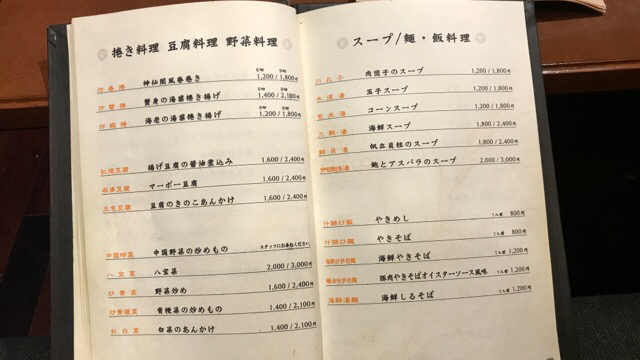 捲き料理 豆腐料理 野菜料理
炸春捲 神仙閣風春巻き 1,200 / 1,800円
蟹身の湯葉捲き揚げ 1,400 / 2,100円
海老の湯葉捲き揚げ 1,200 / 1,800円
紅焼豆腐 揚げ豆腐の醤油煮込み 1,600 / 2,400円
麻婆豆腐 マーボー豆腐 1,600 / 2,400円
豆腐のきのこあんかけ 1,600 / 2,400円
中国時菜 中国野菜の炒めもの スタッフにお尋ねください
八宝菜 八宝菜 2,000 / 3,000円
炒青菜 野菜炒め 1,600 / 2,400円
青梗菜の炒めもの 1,400 / 2,100円
白菜のあんかけ 1,400 / 2,100円
スープ/麺・飯料理
川丸子 肉団子のスープ 1,200 / 1,800円
玉子スープ 1,200 / 1,800円
コーンスープ 1,200 / 1,800円
三鮮湯 海鮮スープ 1,800 / 2,400円
鮮貝湯 帆立貝柱のスープ 1,800 / 2,400円
鮑とアスパラのスープ 2,000 / 3,000円
什錦炒飯 やきめし 1人前 800円
什錦炒麺 やきそば 1人前 800円
海鮮やきそば 1人前 1,200円
豚肉やきそばオイスターソース風味 1人前 1,200円
海鮮湯麺 海鮮しるそば 1人前 1,200円